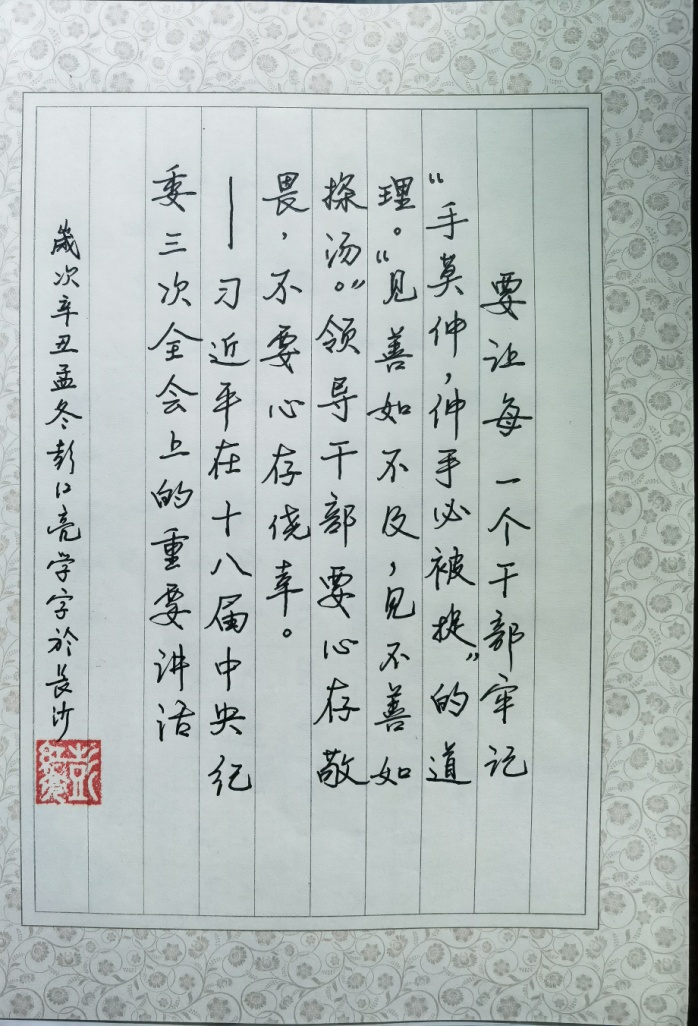 要让每一个干部牢记
“手莫伸，伸手必被捉”的道
理。“见善如不及，见不善如
探汤。”领导干部要心存敬
畏，不要心存侥幸。
——习近平在十八届中央纪
委三次全会上的重要讲话
岁次辛丑孟冬彭红亮学字於长沙